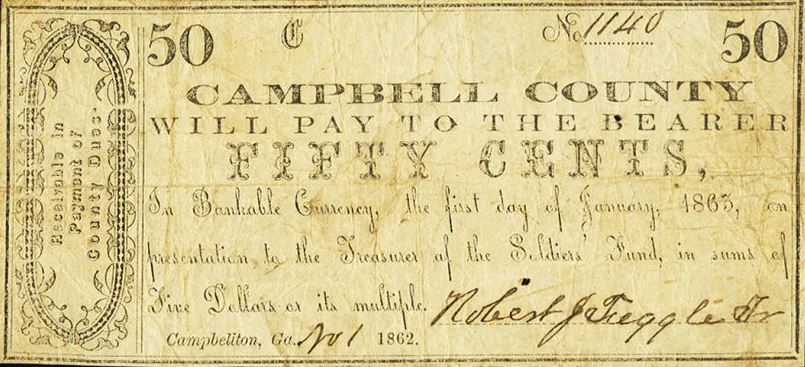 Receivable in
Payment of
County Dues.
50 C No. 1140 50
CAMPBELL COUNTY
WILL PAY TO THE BEARER
FIFTY CENTS,
In Bankable Currency, the first day of January, 1863, on
presentation to the Treasurer of the Soldiers' Fund, in sums of
Five Dollars or its multiple.
Robert J
Campbellton, Ga. Nov 1 1862.